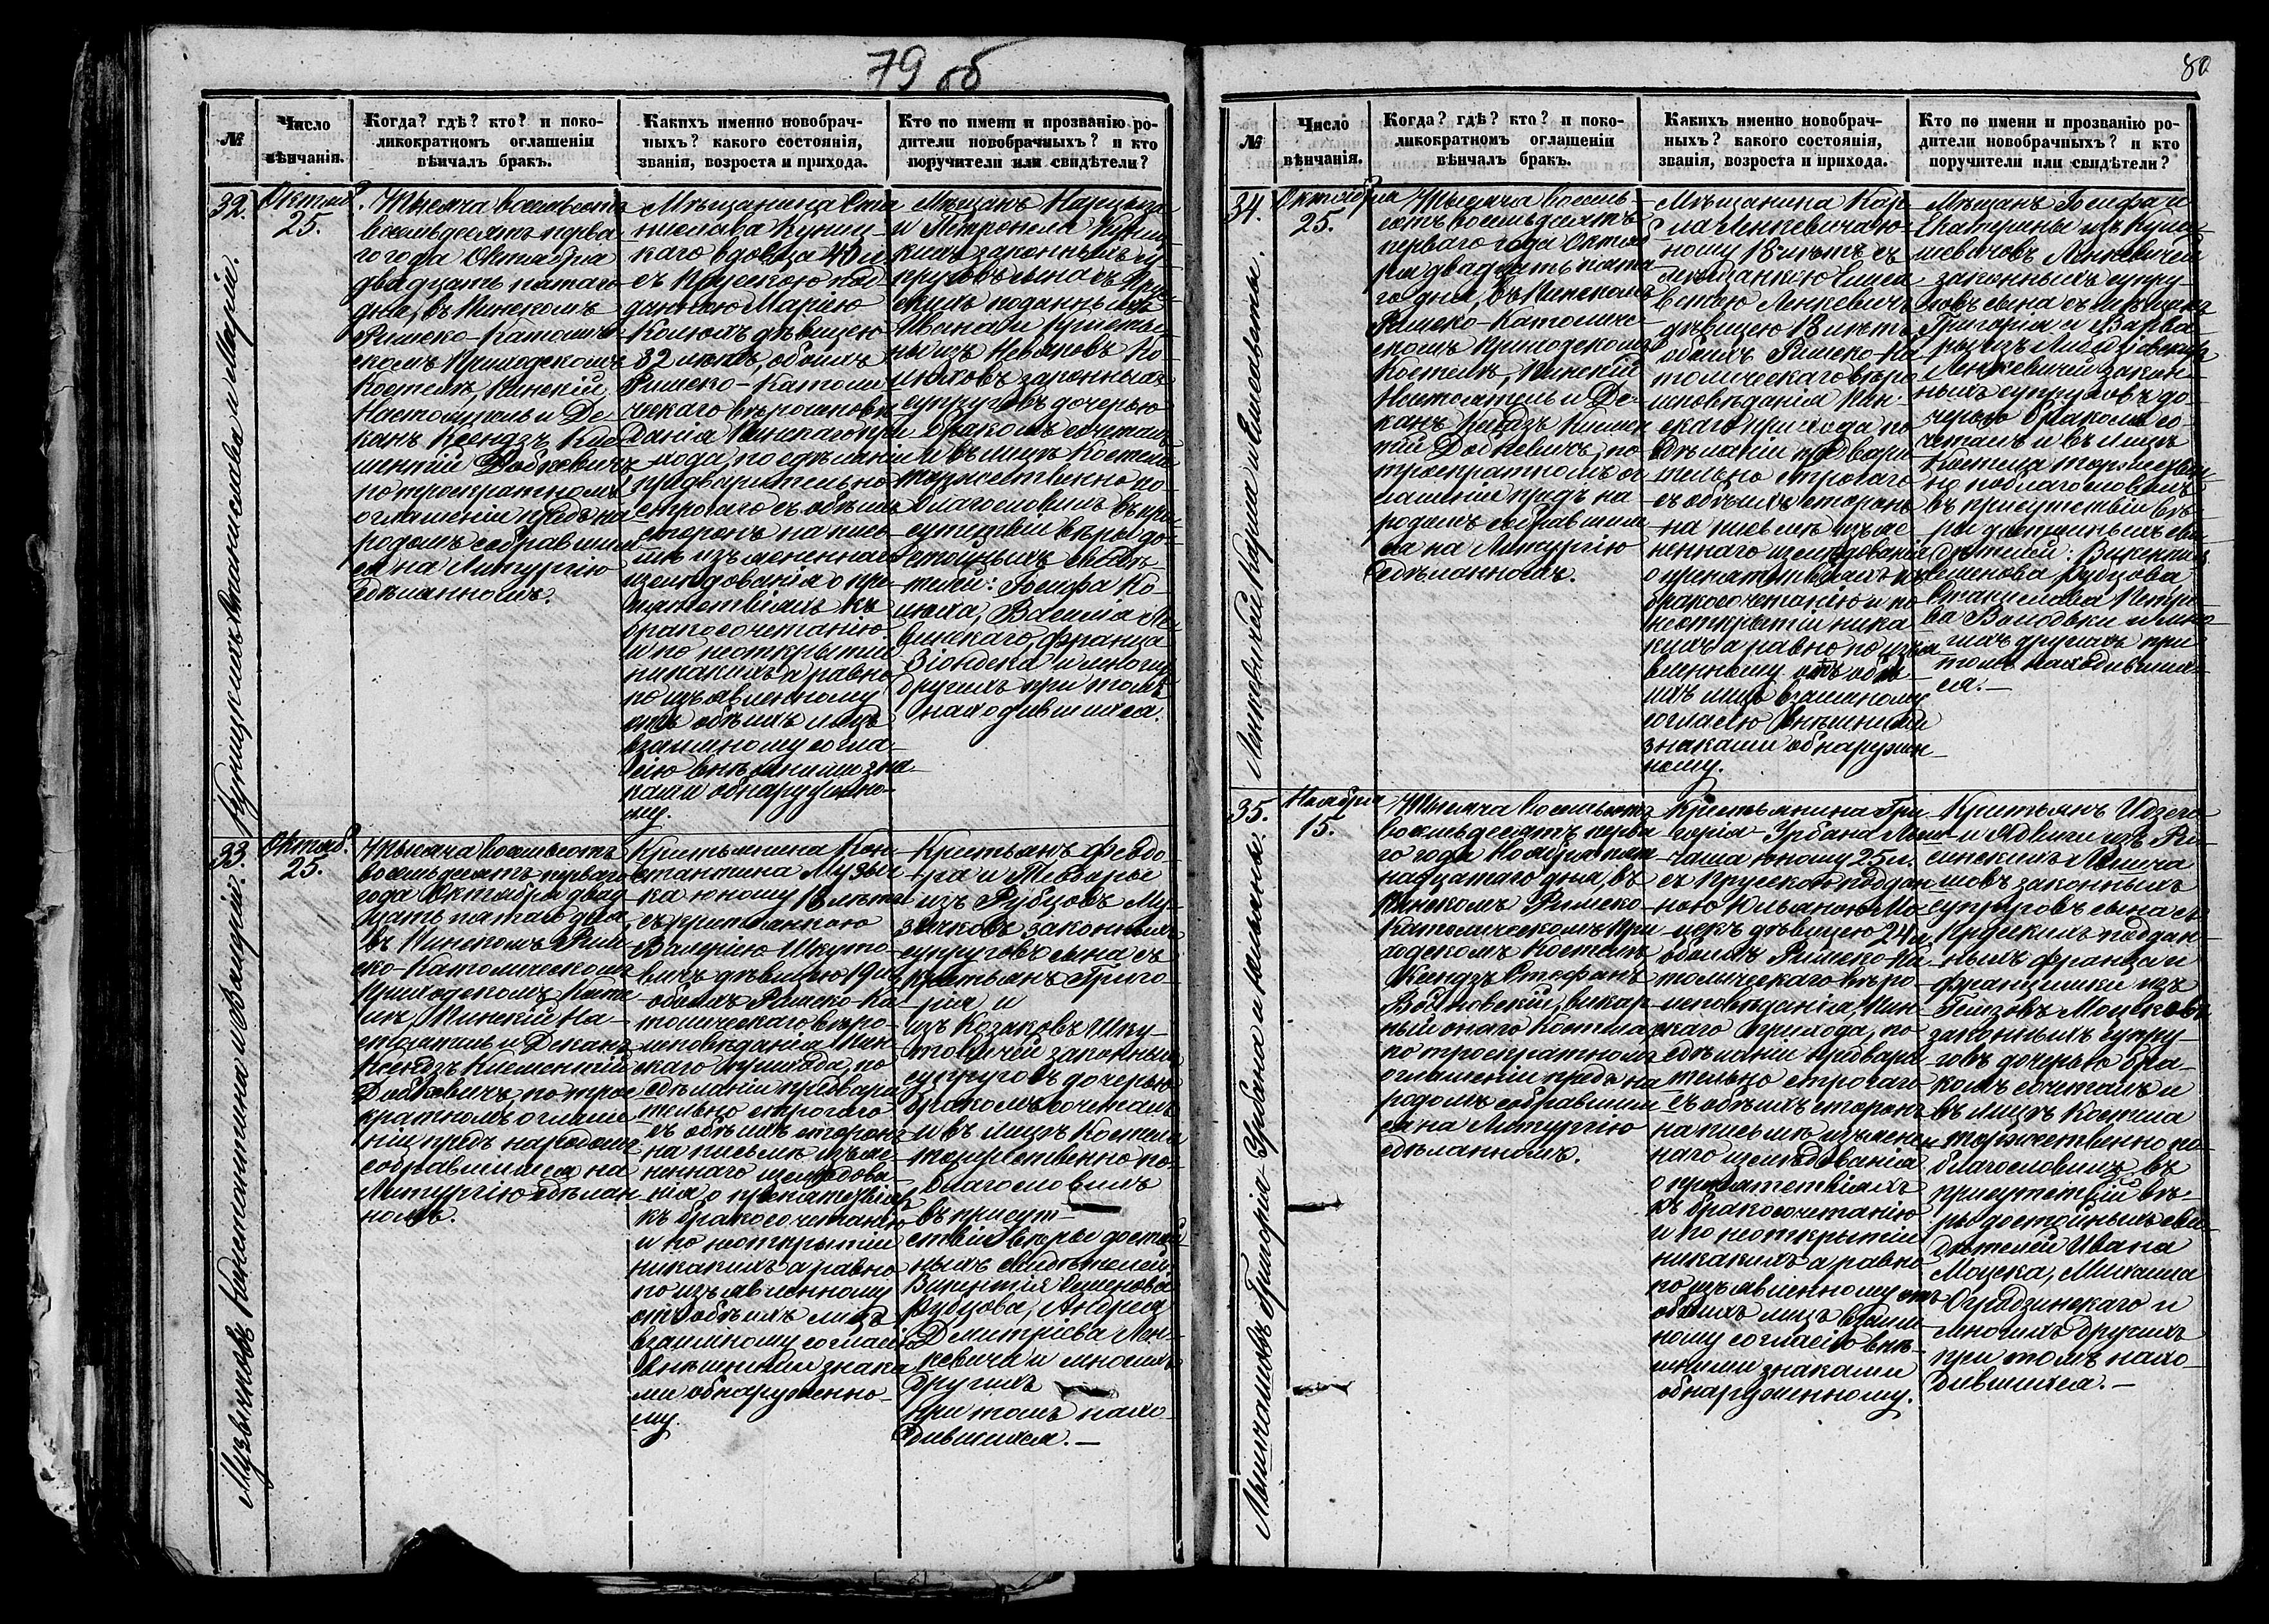 79 об
№
Число вѣнчанія.
Когда? гдѣ? кто? и поко-
ликократномъ оглашеніи
вѣнчалъ бракъ.
Какихъ именно новобрач-
ныхъ? какого состоянія,
званія, возроста и прихода.
Кто по имени и прозванію ро-
дители новобрачныхъ? и кто
поручители или свидѣтели?
32.
Станислава и Маріи.
Октяб.
25.
Тысяча восемьсотъ
восемьдесятъ перва
го года Октября
двадцать пятаго
дня, въ Пинскомъ
Римско-Католиче
скомъ Приходскомъ
Костелѣ, Пинскій
Настоятель и Де-
канъ Ксендзъ Кли
ментій
по троекратномъ
оглашеніи предъ на
родомъ собравшим
ся на Литургію
сдѣланномъ.
Мѣщанина Ста
нислава
каго вдовца 40 л.
съ Прусскою под
данною Маріею
дѣвицею
32 лѣтъ, обоихъ
Римско-Католи
ческаго вѣроисповѣ
данія Пинскаго при
хода, по сдѣланіи
предварительно
строгаго съ обѣихъ
сторонъ на пись
мѣ изъясненнаго
изслѣдованія о пре
пятствіяхъ къ
бракосочетанію
и по неоткрытіи
никакихъ а равно
по изъявленному
отъ обѣихъ лицъ
взаимному согла-
сію внѣшними зна-
ками обнаруженно-
му.
Мѣщанъ
и Петронели
законныхъ су
пруговъ сына съ Пру
скихъ подданныхъ
законныхъ
супруговъ дочерью
бракомъ сочеталъ
и въ лицѣ Костела
торжественно по
благословилъ въ при
сутствіи вѣры до
стойныхъ свидѣ-
телей: Іосифа Ко
Франца
и многихъ
другихъ при томъ
находившихся.
33.
Музычковъ Константина и Валеріи.
Октяб.
25.
Тысяча восемьсотъ
восемьдесятъ перваго
года Октября двад
цать пятаго дня,
въ Пинскомъ Рим
ско-Католическомъ
Приходскомъ Косте
лѣ, Пинскій На-
стоятель и Деканъ
Ксендзъ Климентій
по трое
кратномъ оглаше
ніи предъ народомъ
собравшимся на
Литургію сдѣлан
номъ.
Крестьянина Кон
стантина Музыч
ка юношу 18 лѣтъ
съ крестьянкою
Валеріею Шкуто-
вичъ дѣвицею 19 л.
обоихъ Римско-Ка
толическаго вѣро-
исповѣданія Пин-
скаго прихода, по
сдѣланіи предвари
тельно строгаго
съ обѣихъ сторонъ
на письмѣ изъяс
неннаго изслѣдова-
нія о препятствіяхъ
къ бракосочетанію
и по неоткрытіи
никакихъ а равно
по изъявленному
отъ обѣихъ лицъ
взаимному согласію
внѣшними знака
ми обнаруженно-
му.
Крестьянъ Ѳеодо-
ра и
изъ Рубцовъ Му-
зычковъ законныхъ
супруговъ сына съ
крестьянъ Григо-
рія и
изъ Козаковъ Шку-
товичей законныхъ
супруговъ дочерью
бракомъ сочеталъ
и въ лицѣ Костела
торжественно по-
благословилъ
въ присут-
ствіи вѣры достой
ныхъ свидѣтелей
Викентія Семенова
Рубцова, Андрея
Дмитріева Лен-
кевича и многихъ
другихъ
при томъ нахо-
дившихся.—
80
№
Число вѣнчанія.
Когда? гдѣ? кто? и поко-
ликократномъ оглашеніи
вѣнчалъ бракъ.
Какихъ именно новобрач-
ныхъ? какого состоянія,
званія, возроста и прихода.
Кто по имени и прозванію ро-
дители новобрачныхъ? и кто
поручители или свидѣтели?
34.
Ленкевичей Карла и Елисаветы.
Октября
25.
Тысяча восемь-
сотъ восемьдесятъ
перваго года Октяб
ря двадцать пята
го дня, въ Пинскомъ
Римско-Католиче-
скомъ Приходскомъ
Костелѣ, Пинскій
Настоятель и Де-
канъ Ксендзъ Климен
тій
троекратномъ ог
лашеніи предъ на
родомъ собравшим
ся на Литургію
сдѣланномъ.
Мѣщанина Кар
ла Ленкевича ю-
ношу 18 лѣтъ съ
мѣщанкою Елиса
ветою Ленкевичъ
дѣвицею 18 лѣтъ
обоихъ Римско-Ка
толическаго вѣро
исповѣданія Пин-
скаго прихода по
сдѣланіи предвари
тельно строгаго
съ обѣихъ сторонъ
на письмѣ изъяс
неннаго изслѣдованія
о препятствіяхъ къ
бракосочетанію и по
неоткрытіи ника
кихъ а равно по изъя
вленному отъ обѣ-
ихъ лицъ взаимному
согласію внѣшними
знаками обнаружен-
ному.
Мѣщанъ Іосифа и
Екатерины изъ
Ленкевичей
законныхъ супру-
говъ сына съ Мѣщанъ
Григорія и Варва
ры изъ
Ленкевичей закон-
ныхъ супруговъ до-
черью бракомъ со-
четалъ и въ лицѣ
Костела торжествен
но поблагословилъ
въ присутствіи вѣ-
ры достойныхъ сви
дѣтелей: Викентія
Семенова Рубцова
Станислава Петро
ва и мно
гихъ другихъ при
томъ находивших
ся.—
35.
Григорія-Урбана и
Ноября
15.
Тысяча восемьсотъ
восемьдесятъ перва
го года Ноября пят
надцатаго дня, въ
Пинскомъ Римско-
Католическомъ При
ходскомъ Костелѣ
Ксендзъ Стефанъ
викар
ный онаго Костела
по троекратномъ
оглашеніи предъ на
родомъ собравшим
ся на Литургію
сдѣланномъ.
Крестьянина Гри
горія-Урбана
юношу 25 л.
съ Прусскою поддан
ною
дѣвицею 24 л.
обоихъ Римско-Ка
толическаго вѣро-
исповѣданія, Пин-
скаго прихода, по
сдѣланіи предвари
тельно строгаго
съ обѣихъ сторонъ
на письмѣ изъяснен
наго изслѣдованія
о препятствіяхъ
къ бракосочетанію
и по неоткрытіи
никакихъ а равно
по изъявленному отъ
обѣихъ лицъ взаим
ному согласію внѣ-
шними знаками
обнаруженному.
Крестьянъ
изъ
законныхъ
супруговъ сына съ
Прускихъ поддан-
ныхъ Франца и
Францишки изъ
законныхъ супру-
говъ дочерью бра-
комъ сочеталъ и
въ лицѣ Костела
торжественно по-
благословилъ въ
присутствіи вѣ-
ры достойныхъ сви-
дѣтелей Ивана
Михаила
Оградзинскаго и
многихъ другихъ
при томъ нахо-
дившихся.—